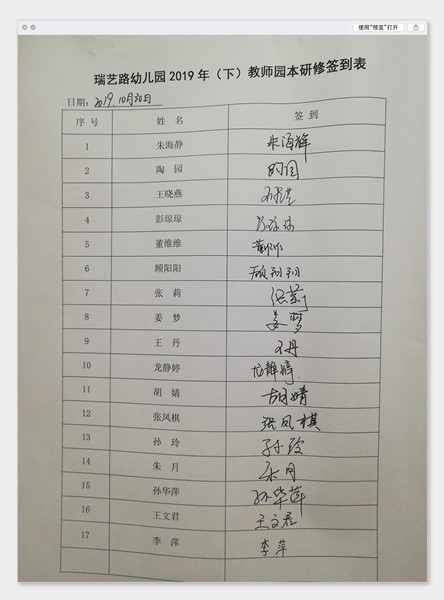 使用"预览"打开
瑞艺路幼儿园2019年（下）教师园本研修签到表
日期：2019.10月30日
序 号 姓 名 签 到
1 朱海静
2 陶 园
3 王晓燕
4 彭琼琼
5 董维维
6 顾阳阳
7 张 莉 张莉
8 姜 梦 姜梦
9 王 丹 王丹
10 龙静婷 龙静婷
11 胡 婧 胡婧
12 张凤棋 张凤棋
13 孙 玲 孙玲
14 朱 月 朱月
15 孙华萍 孙华萍
16 王文君 王文君
17 李 萍 李萍